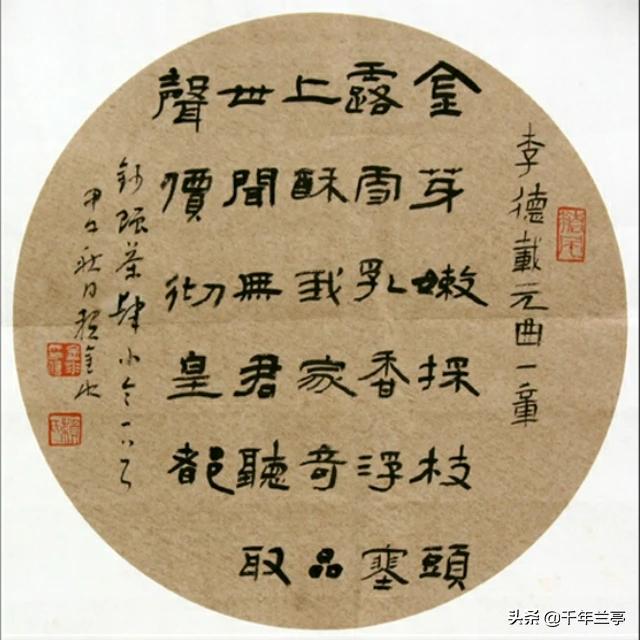 李德載元曲一章
金芽嫩採枝頭
露雪乳香浮塞
上酥我家奇品
世聞無君聽取
聲價彻皇都
茶肆小令
甲午秋日
头条 @千年兰亭